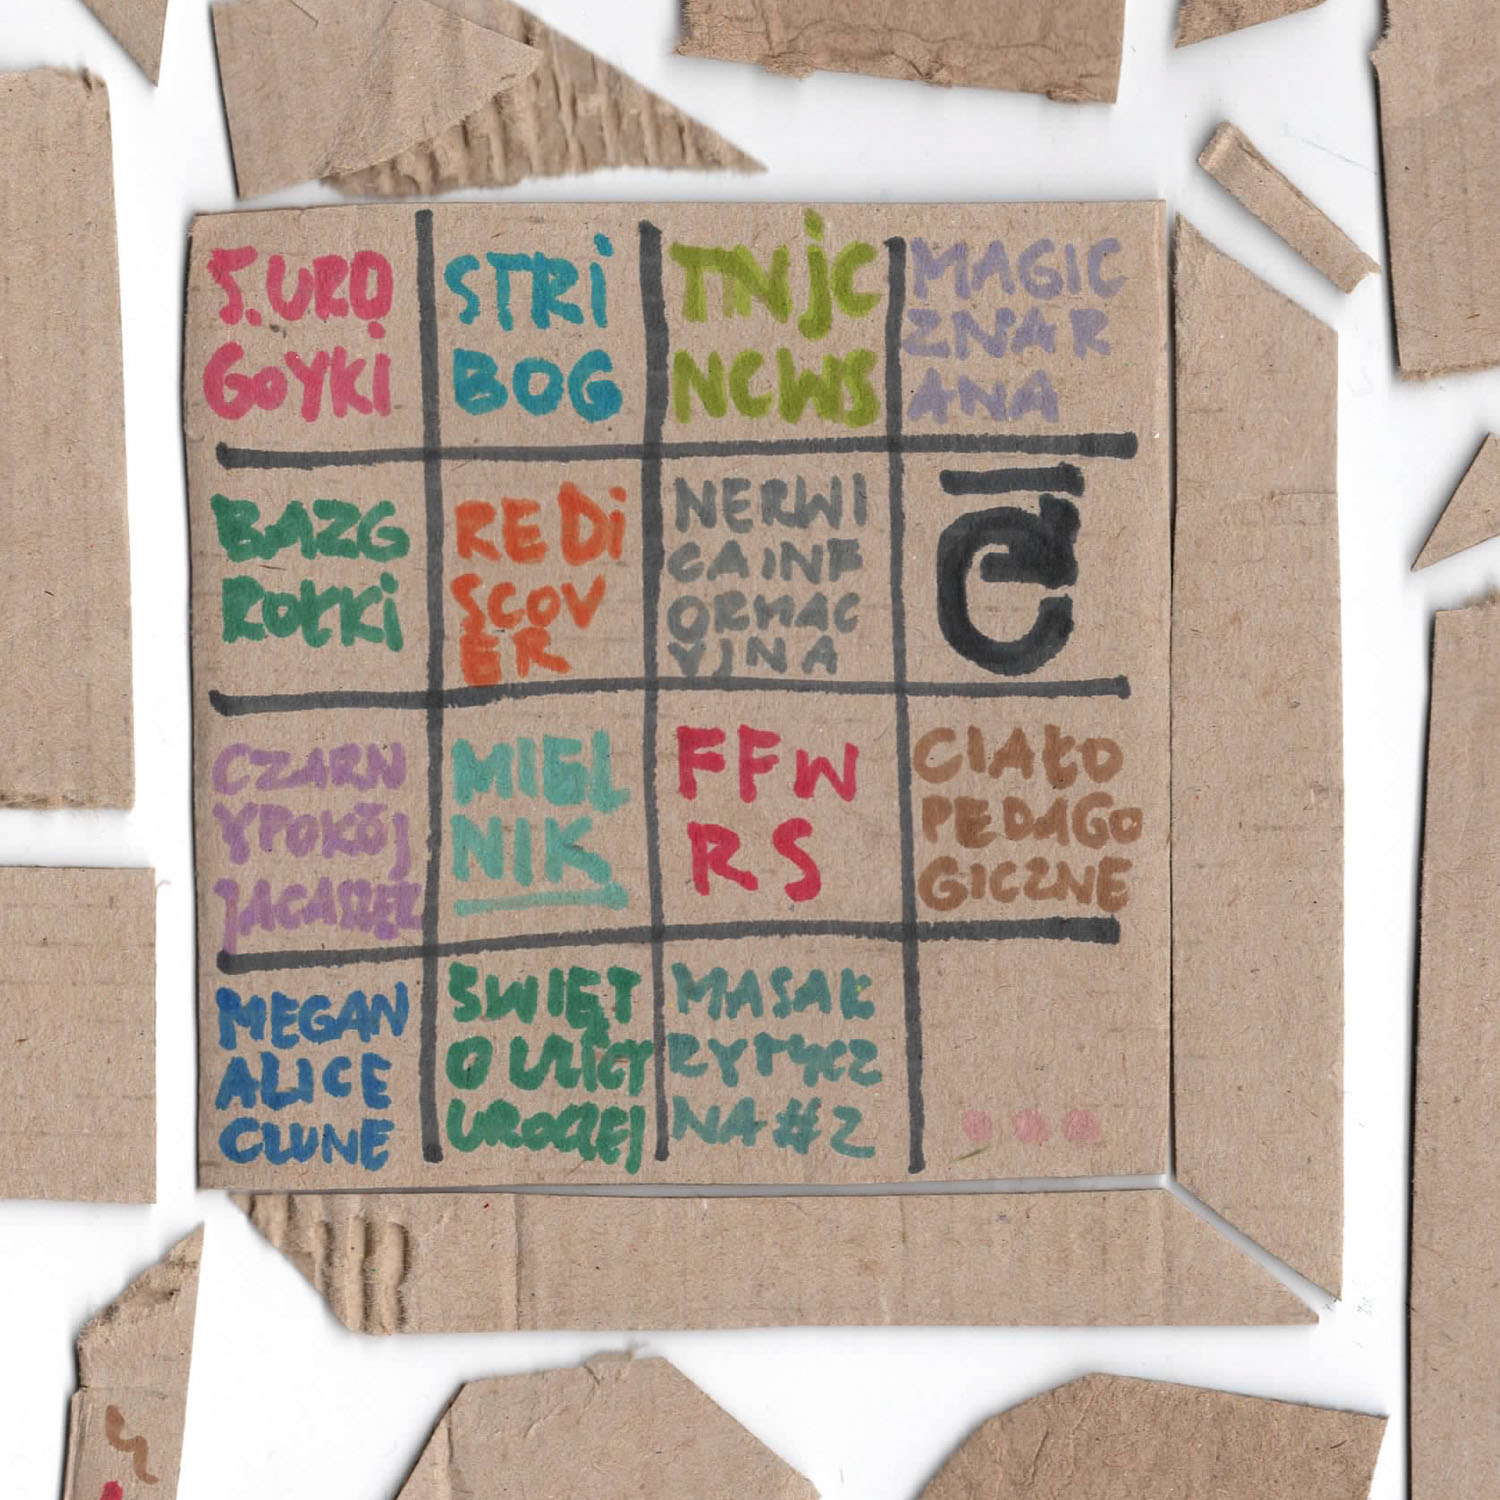 5. URO
GOYKI
STRi
BOG
TNjC
NCWS
MAGIC
ZNAR
ANA
BAZG
ROŁKi
REDi
SCOV
ER
NERWI
CAINF
ORMAC
YJNA
CZARN
YPOKÓJ
MIEL
NIK
FFW
RS
CIAŁO
PEDAGO
GICZNE
MEGAN
ALICE
CLUNE
ŚWIĘT
O ULICY
UROCZEJ
MASAK
RYTYCZ
NA#2
...